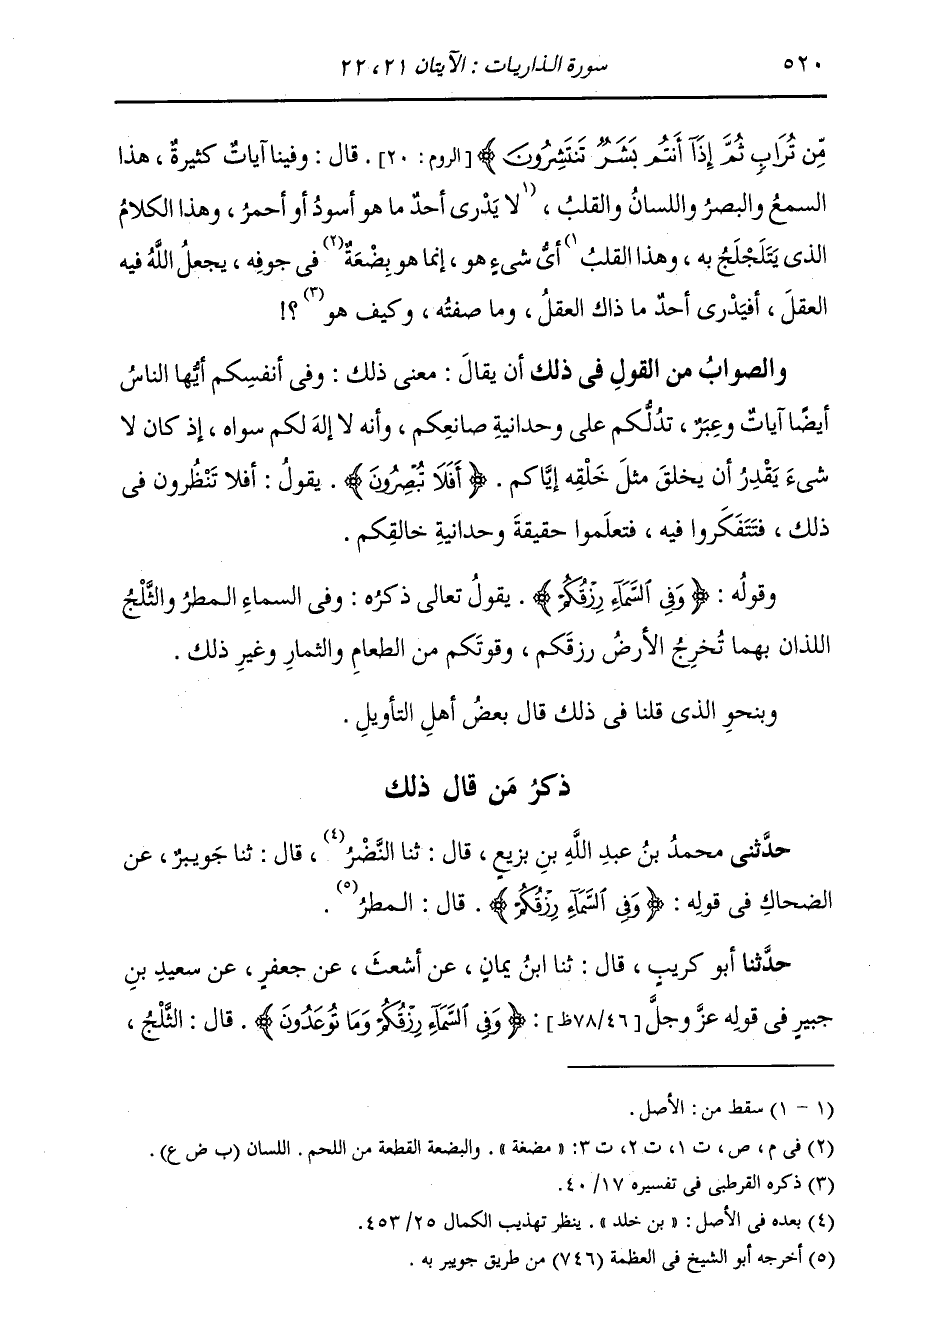 ٥٢٠ سورة الذاريات : الآيتان ٢١، ٢٢
مِّن تُرَابٍ ثُمَّ إِذَآ أَنتُم بَشَرٌ تَنتَشِرُونَ ﴾ [الروم: ٢٠] . قال : وفينا آياتٌ كثيرةٌ ، هذا
السمعُ والبصرُ واللسانُ والقلبُ ، (١ لا يَدْرى أحدٌ ما هو أسودُ أو أحمرُ ، وهذا الكلامُ
الذى يَتَلَجْلَجُ به ، وهذا القلبُ ١) أىُّ شىءٍ هو ، إنما هو بِضْعَةٌ (٢) فى جوفِه ، يجعلُ اللَّهُ فيه
العقلَ ، أفيَدْرى أحدٌ ما ذاك العقلُ ، وما صفتُه ، وكيف هو (٣) ؟!
والصوابُ من القولِ فى ذلك أن يقالَ : معنى ذلك : وفى أنفسِكم أيُّها الناسُ
أيضًا آياتٌ وعِبَرٌ ، تدُلُّكم على وحدانيةِ صانعِكم ، وأنه لا إلهَ لكم سواه ، إذ كان لا
شىءَ يَقْدِرُ أن يخلقَ مثلَ خَلْقِه إيَّاكم . ﴿ أَفَلَا تُبْصِرُونَ ﴾ . يقولُ : أفلا تَنْظُرون فى
ذلك ، فتَتَفَكَّروا فيه ، فتعلَموا حقيقةَ وحدانيةِ خالقِكم .
وقولُه : ﴿ وَفِى ٱلسَّمَآءِ رِزْقُكُمْ ﴾ . يقولُ تعالى ذكرُه : وفى السماءِ المطرُ والثَّلْجُ
اللذان بهما تُخرِجُ الأرضُ رزقَكم ، وقوتَكم من الطعامِ والثمارِ وغيرِ ذلك .
وبنحوِ الذى قلنا فى ذلك قال بعضُ أهلِ التأويلِ .
ذكرُ مَن قال ذلك
حدَّثنى محمدُ بنُ عبدِ اللَّهِ بنِ بزيعٍ ، قال : ثنا النَّضْرُ (٤) ، قال : ثنا جَويبرٌ ، عن
الضحاكِ فى قولِه : ﴿ وَفِى ٱلسَّمَآءِ رِزْقُكُمْ ﴾ . قال : المطرُ (٥) .
حدَّثنا أبو كريبٍ ، قال : ثنا ابنُ يمانٍ ، عن أشعثَ ، عن جعفرٍ ، عن سعيدِ بنِ
جبيرٍ فى قولِه عزَّ وجلَّ [٧٨/٤٦ظ] : ﴿ وَفِى ٱلسَّمَآءِ رِزْقُكُمْ وَمَا تُوعَدُونَ ﴾ . قال : الثَّلْجُ ،
(١ - ١) سقط من : الأصل .
(٢) فى م، ص، ت ١، ت ٢، ت ٣: « مضغة » . والبضعة القطعة من اللحم . اللسان (ب ض ع) .
(٣) ذكره القرطبى فى تفسيره ١٧/ ٤٠.
(٤) بعده فى الأصل : « بن خلد » . ينظر تهذيب الكمال ٢٥/ ٤٥٣.
(٥) أخرجه أبو الشيخ فى العظمة (٧٤٦) من طريق جويبر به .